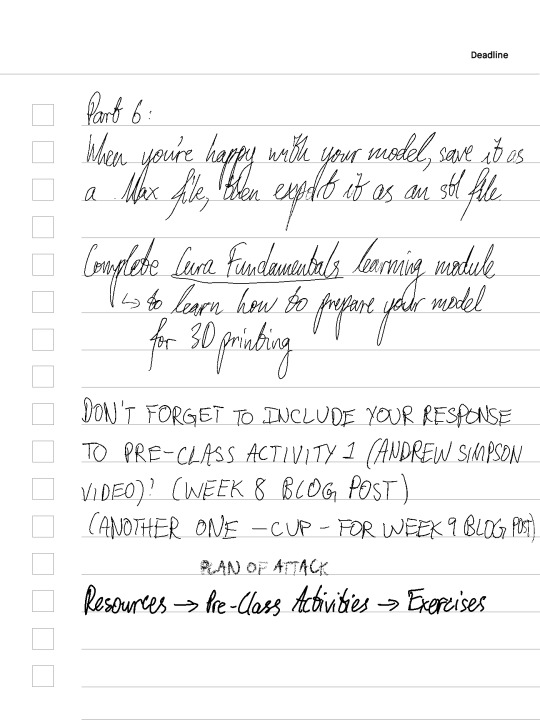 Deadline
Part 6:
When you're happy with your model, save it as
a .Max file, then export it as an stl file
Complete Cura Fundamentals learning module
↳ to learn how to prepare your model
for 3D printing
DON'T FORGET TO INCLUDE YOUR RESPONSE
TO PRE-CLASS ACTIVITY 1 (ANDREW SIMPSON
VIDEO)! (WEEK 8 BLOG POST)
(ANOTHER ONE - CUP - FOR WEEK 9 BLOG POST)
PLAN OF ATTACK
Resources → Pre-Class Activities → Exercises